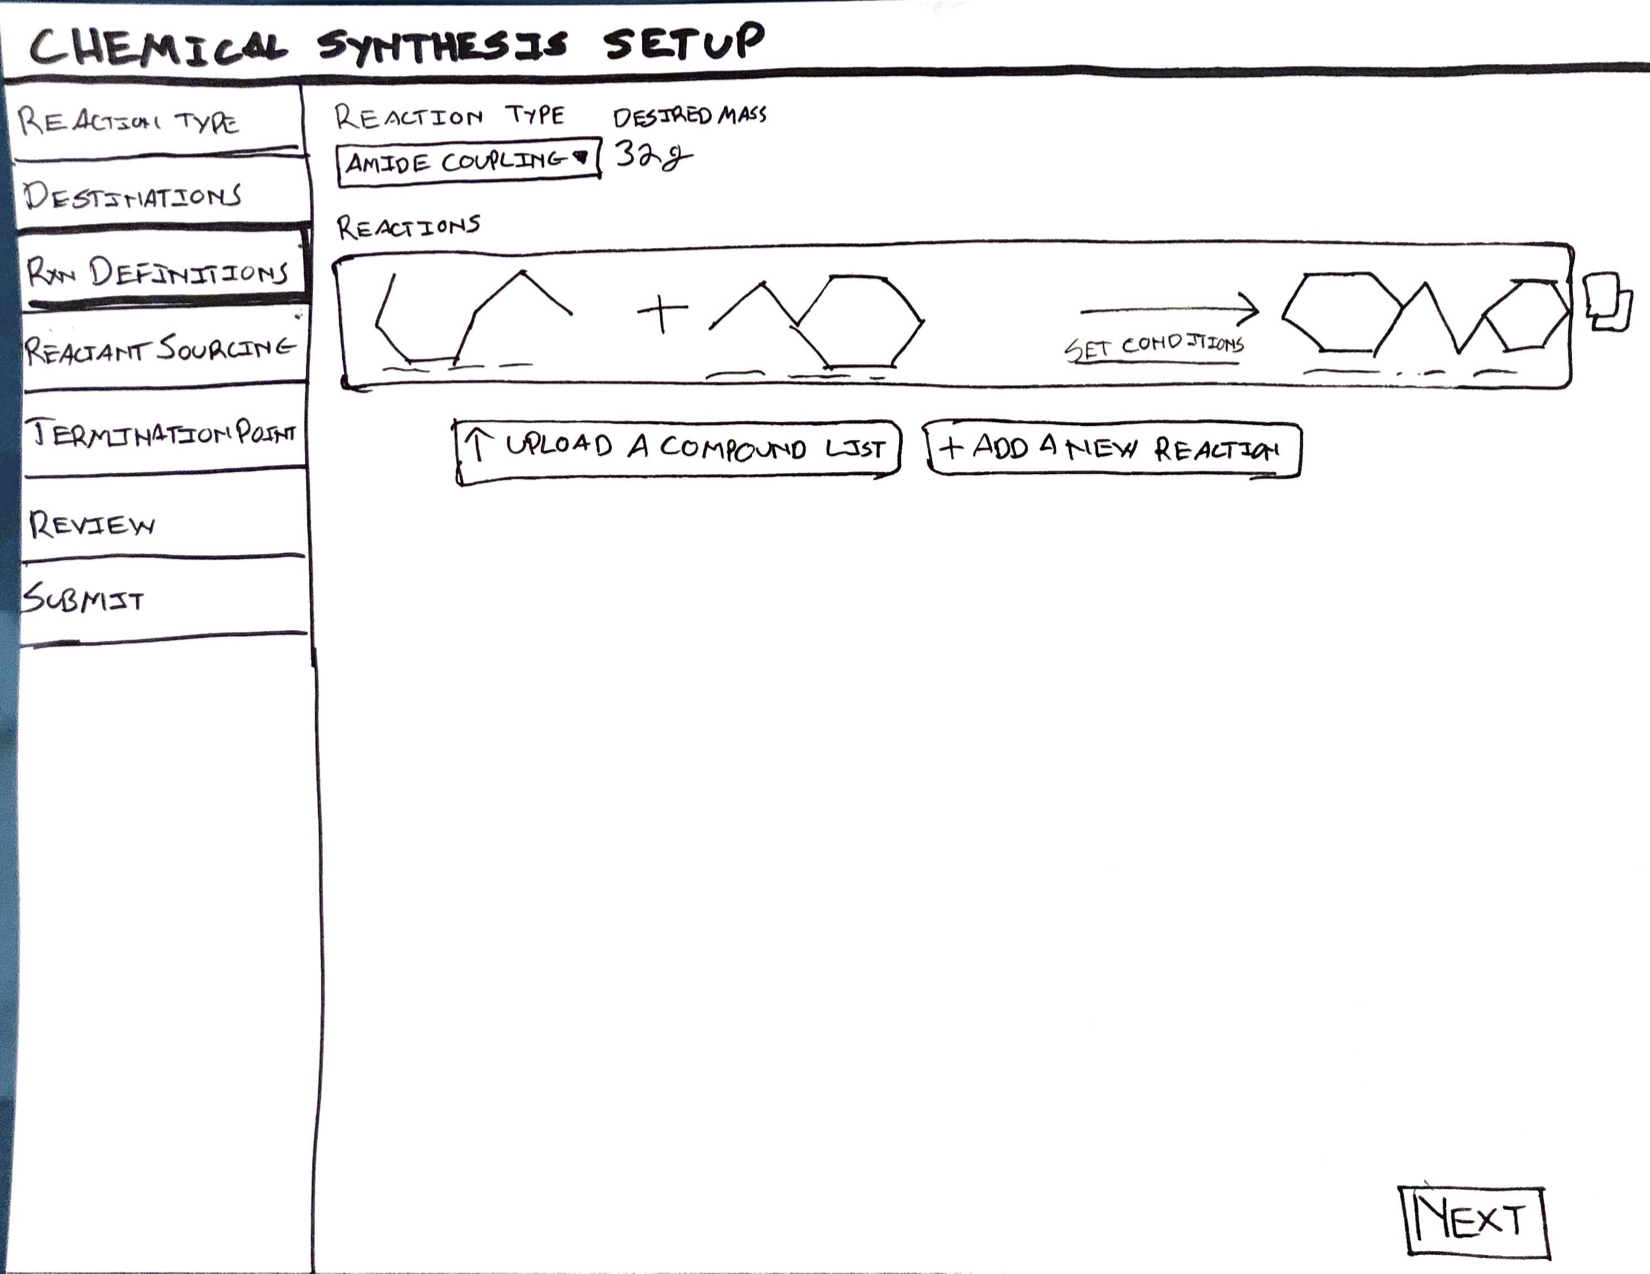 CHEMICAL SYNTHESIS SETUP
REACTION TYPE
DESTINATIONS
RXN DEFINITIONS
REACTANT SOURCING
TERMINATION POINT
REVIEW
SUBMIT
REACTION TYPE DESIRED MASS
AMIDE COUPLING 32g
REACTIONS
+
SET CONDITIONS
↑ UPLOAD A COMPOUND LIST + ADD A NEW REACTION
NEXT